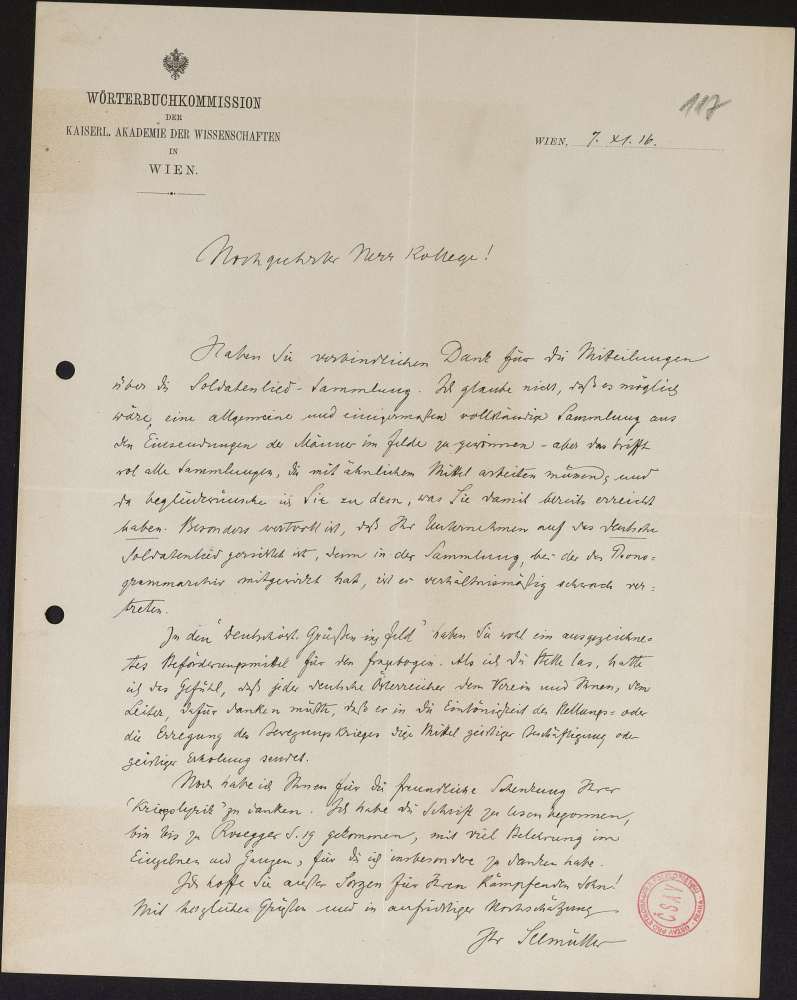 WÖRTERBUCHKOMMISSION
DER
KAISERL. AKADEMIE DER WISSENSCHAFTEN
IN
WIEN.
117
WIEN, 7. XI. 16.
Hochgeehrter Herr Kollege!
Haben Sie verbindlichen Dank für die Mitteilungen
über die Soldatenlied-Sammlung. Ich glaube nicht, daß es möglich
wäre, eine allgemeine und einigermaßen vollständige Sammlung aus
den Einsendungen der Männer im Felde zu gewinnen - aber das trifft
wol alle Sammlungen, die mit ähnlichem Mittel arbeiten müssen, und
da beglückwünsche ich Sie zu dem, was Sie damit bereits erreicht
haben. Besonders wertvoll ist, daß Ihr Unternehmen auf das deutsche
Soldatenlied gerichtet ist, denn in der Sammlung, bei der das Phono-
grammarchiv mitgewirkt hat, ist es verhältnismäßig schwach ver-
treten.
In den "Deutschöst. Grüßen ins Feld" haben Sie wohl ein ausgezeichne-
tes Beförderungsmittel für den Fragebogen. Als ich die Stelle las, hatte
ich das Gefühl, daß jeder deutsche Österreicher dem Verein und Ihnen, dem
Leiter, dafür danken müßte, daß er in die Eintönigkeit des Stellungs- oder
die Erregung des Bewegungskrieges diese Mittel geistiger Beschäftigung oder
geistiger Erholung sendet.
Noch habe ich Ihnen für die freundliche Schenkung Ihrer
"Kriegslyrik" zu danken. Ich habe die Schrift zu lesen begonnen,
bin bis zu Rosegger S. 19 gekommen, mit viel Belehrung im
Einzelnen und Ganzen, für die ich insbesondere zu danken habe.
Ich hoffe Sie außer Sorgen für Ihren kämpfenden Sohn!
Mit herzlichen Grüßen und in aufrichtiger Hochschätzung
Ihr Seemüller
ČSAV